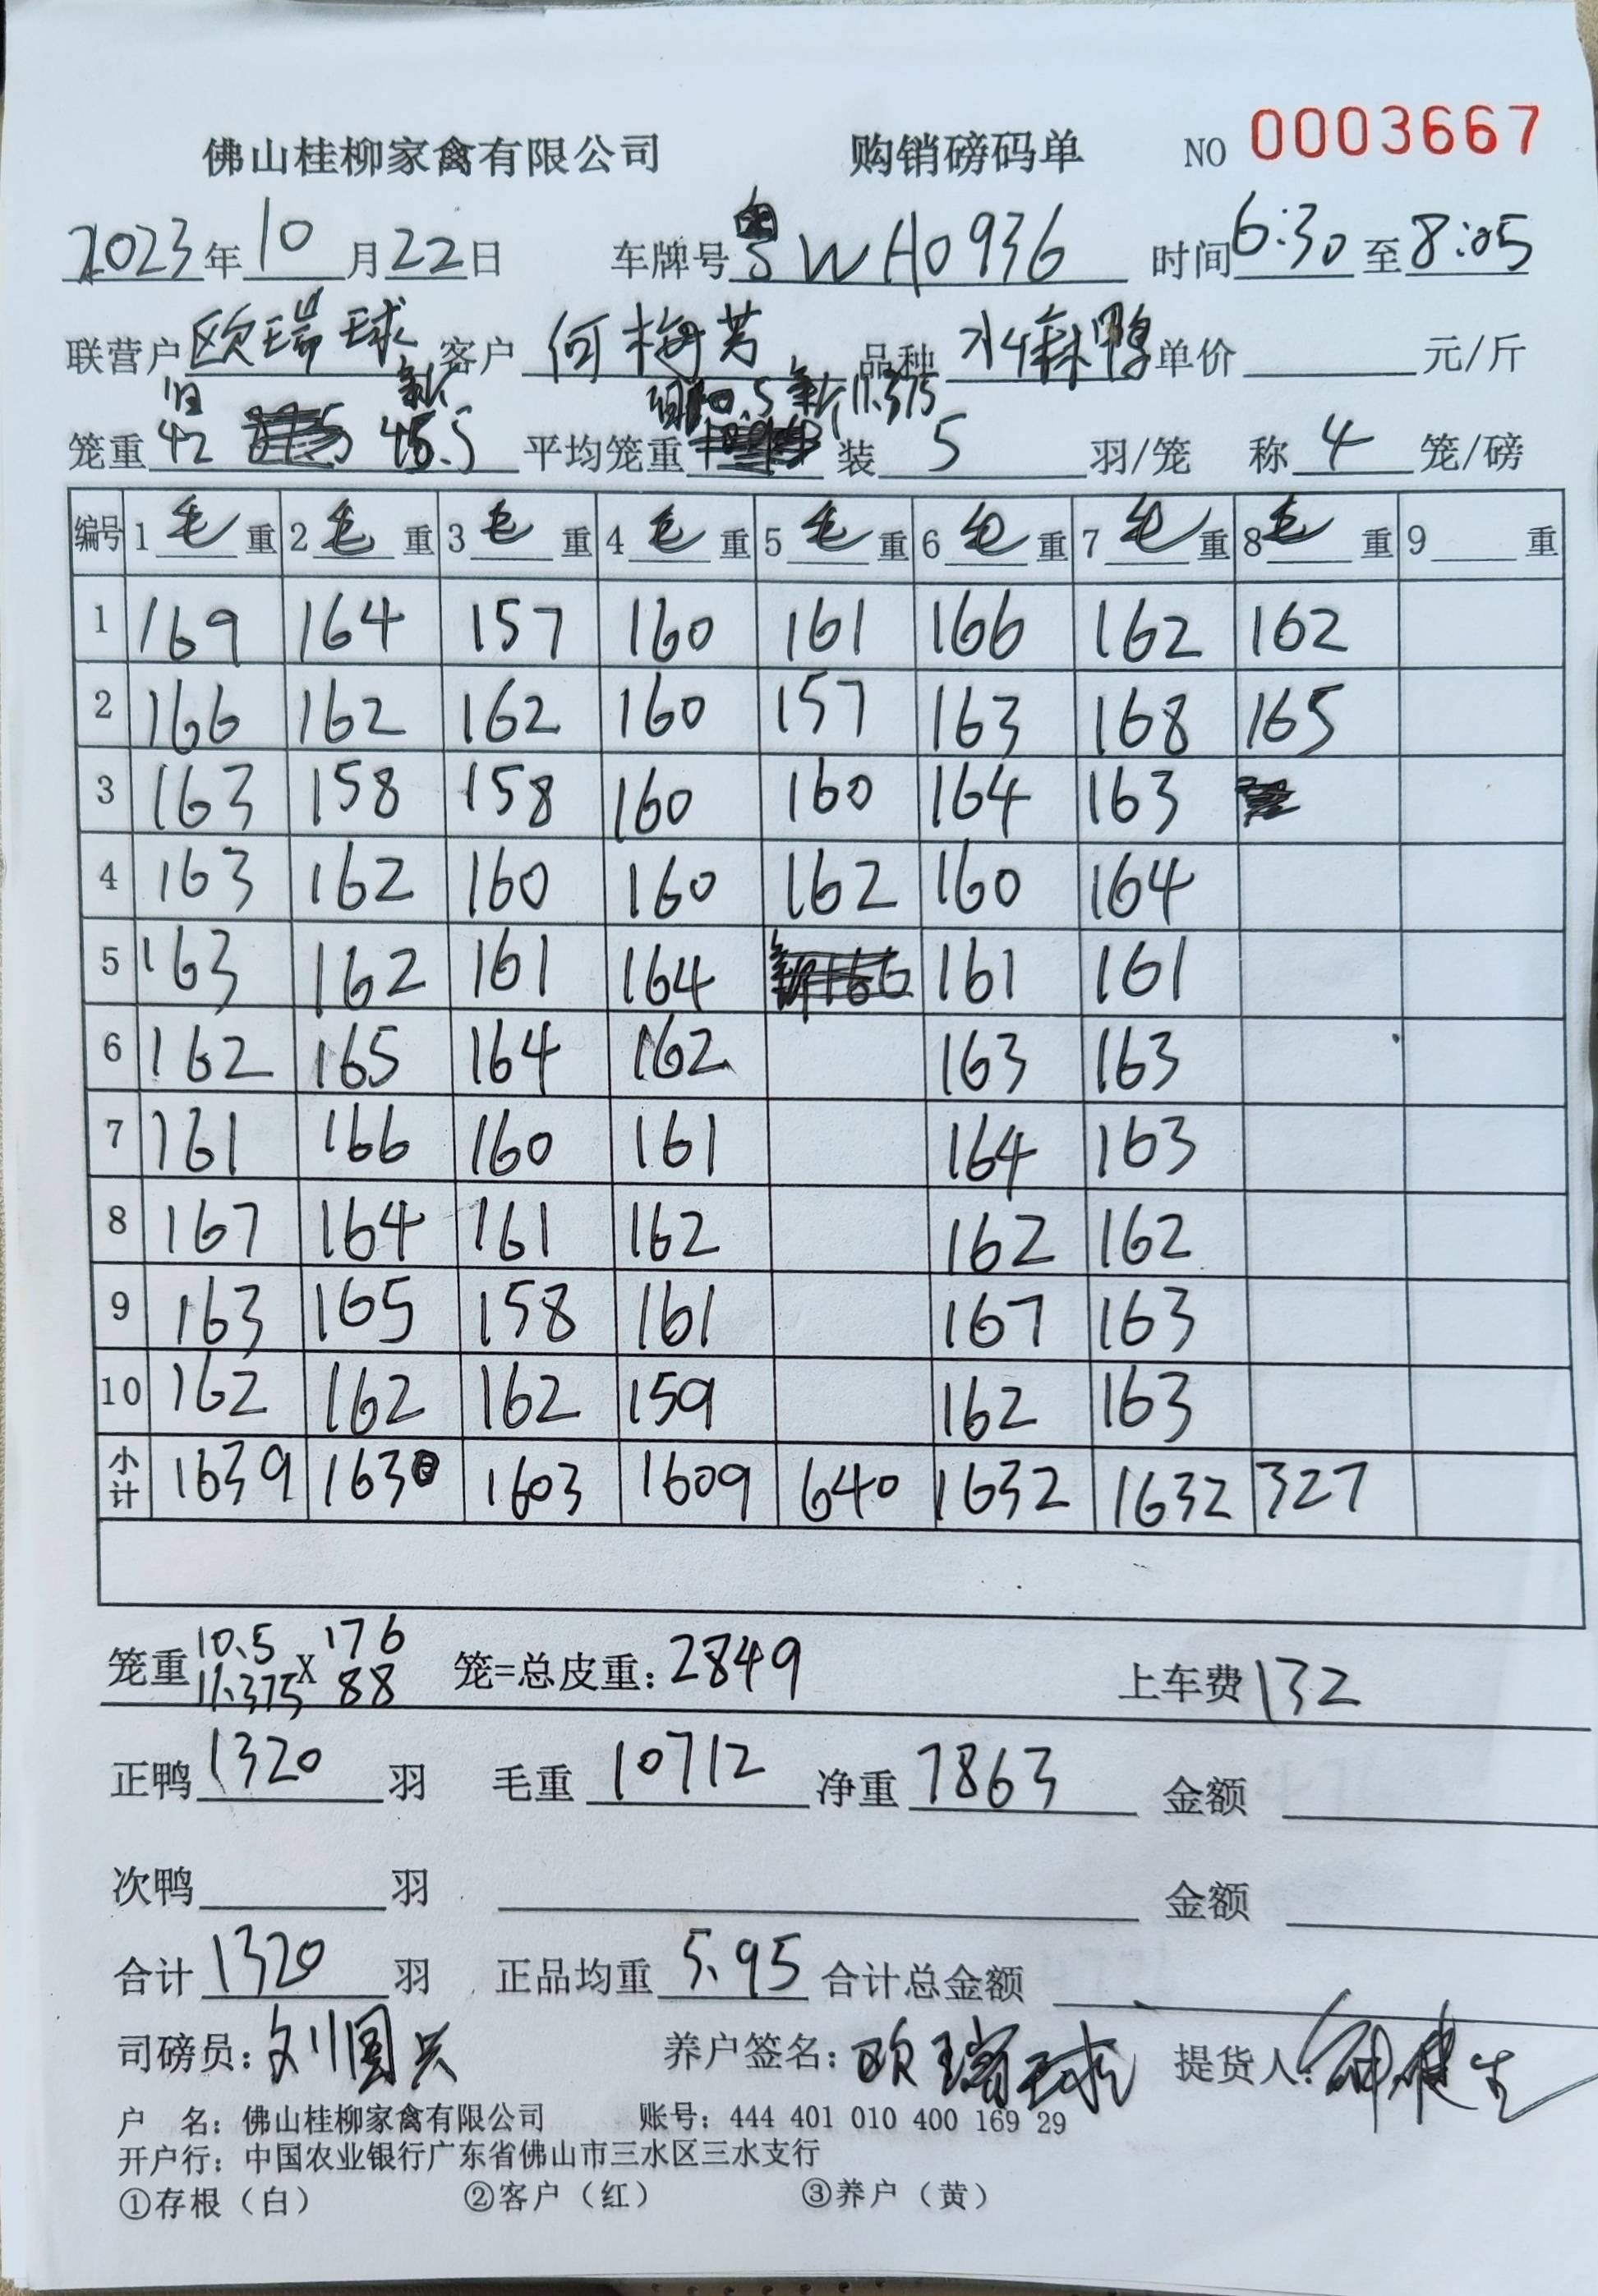 佛山桂柳家禽有限公司 购销磅码单 NO 0003667
2023年10月22日 车牌号粤WH0936 时间6:30至8:05
联营户欧瑞球 客户何梅芳 品种水麻鸭 单价 元/斤
旧 新 旧10.5 新11.375
笼重42 45.5 平均笼重 装5羽/笼 称4笼/磅
编号 1毛重 2毛重 3毛重 4毛重 5毛重 6毛重 7毛重 8毛重 9 重
1 169 164 157 160 161 166 162 162
2 166 162 162 160 157 163 168 165
3 163 158 158 160 160 164 163
4 163 162 160 160 162 160 164
5 163 162 161 164 新166 161 161
6 162 165 164 162 163 163
7 161 166 160 161 164 163
8 167 164 161 162 162 162
9 163 165 158 161 167 163
10 162 162 162 159 162 163
小计 1639 1630 1603 1609 640 1632 1632 327
10.5 176
笼重 X 笼=总皮重:2849 上车费132
11.375 88
正鸭1320羽 毛重10712 净重7863 金额
次鸭 羽 金额
合计1320羽 正品均重5.95 合计总金额
司磅员:刘国兴 养户签名:欧瑞球 提货人:
户 名:佛山桂柳家禽有限公司 账号:444 401 010 400 169 29
开户行:中国农业银行广东省佛山市三水区三水支行
①存根(白) ②客户(红) ③养户(黄)